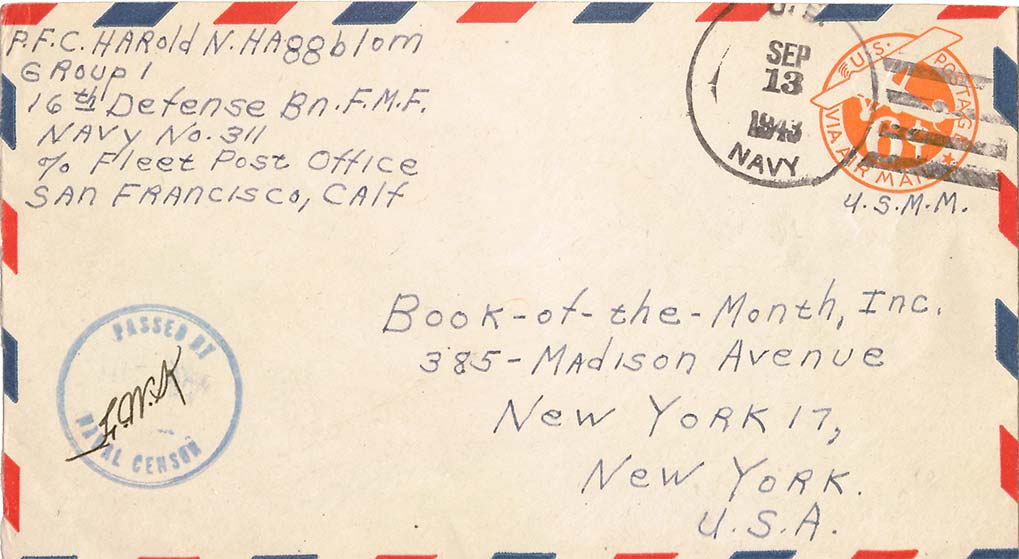 P.F.C. HARold N. HAggblom
GRoup 1
16th Defense Bn. F.M.F.
NAVY No. 311
c/o Fleet Post Office
SAN FRANCISCO, CAlf
U.S.
SEP
13
1943
NAVY
U.S. POSTAGE
6¢
VIA AIR MAIL
U.S.M.M.
Book-of-the-Month, Inc.
385-MAdison Avenue
New York 17,
New York.
U.S.A.
PASSED BY
F.W.K
NAVAL CENSOR